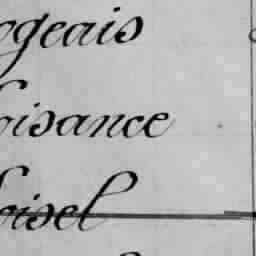 ogeais
oisance
oisel